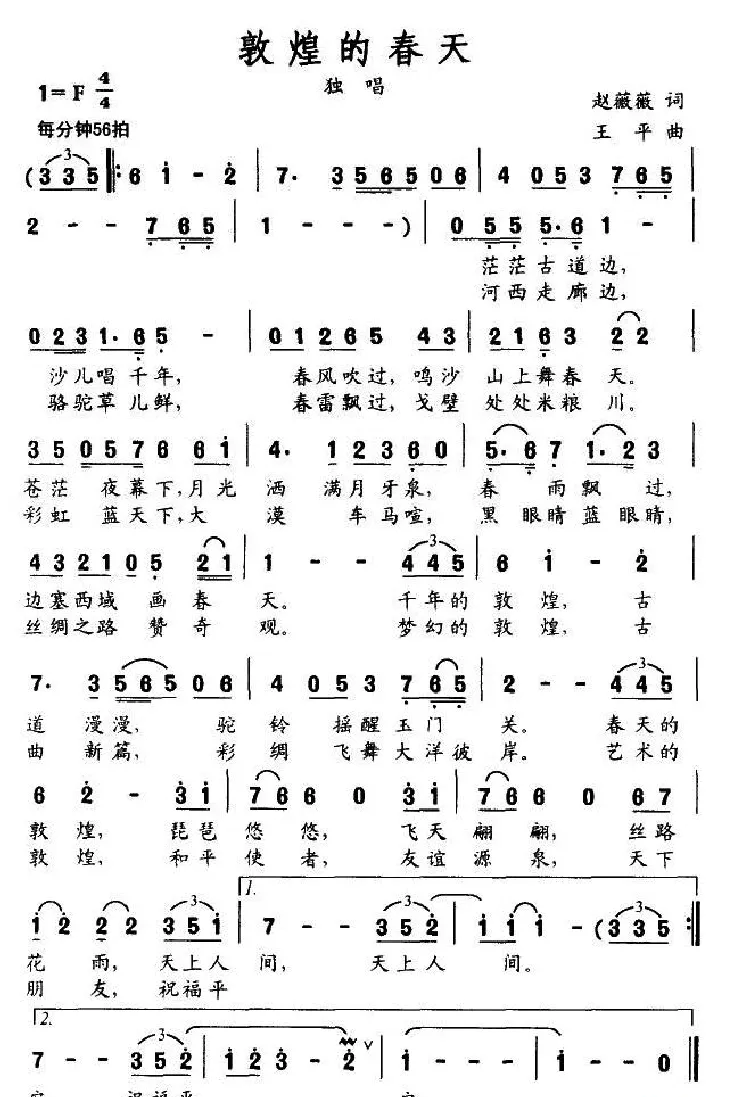 敦煌的春天
独唱
1=F 4/4
每分钟56拍
赵薇薇 词
王平 曲
(3 3 5 ‖: 6 1 - 2 | 7. 3 5 6 5 0 6 | 4 0 5 3 7 6 5 |
2 - - 7 6 5 | 1 - - -) | 0 5 5 5. 6 1 - |
茫茫古道边,
河西走廊边,
0 2 3 1. 6 5 - | 0 1 2 6 5 4 3 | 2 1 6 3 2 2 |
沙儿唱千年, 春风吹过,鸣沙 山上舞春天。
骆驼草儿鲜, 春雷飘过,戈壁 处处米粮川。
3 5 0 5 7 6 6 1 | 4. 1 2 3 6 0 | 5. 6 7 1. 2 3 |
苍茫夜幕下,月光洒满月牙泉, 春雨飘过,
彩虹蓝天下,大漠车马喧, 黑眼睛蓝眼睛,
4 3 2 1 0 5 2 1 | 1 - - 4 4 5 | 6 1 - 2 |
边塞西域画春天。 千年的敦煌, 古
丝绸之路赞奇观。 梦幻的敦煌, 古
7. 3 5 6 5 0 6 | 4 0 5 3 7 6 5 | 2 - - 4 4 5 |
道漫漫, 驼铃摇醒玉门关。 春天的
曲新篇, 彩绸飞舞大洋彼岸。 艺术的
6 2 - 3 1 | 7 6 6 0 3 1 | 7 6 6 0 6 7 |
敦煌, 琵琶悠悠, 飞天翩翩, 丝路
敦煌, 和平使者, 友谊源泉, 天下
1 2 2 2 3 5 1 | 1. 7 - - 3 5 2 | 1 1 1 - (3 3 5 :‖
花雨, 天上人间, 天上人间。
朋友, 祝福平
2. 7 - - 3 5 2 | 1 2 3 - 2 | 1 - - - | 1 - - 0 ‖